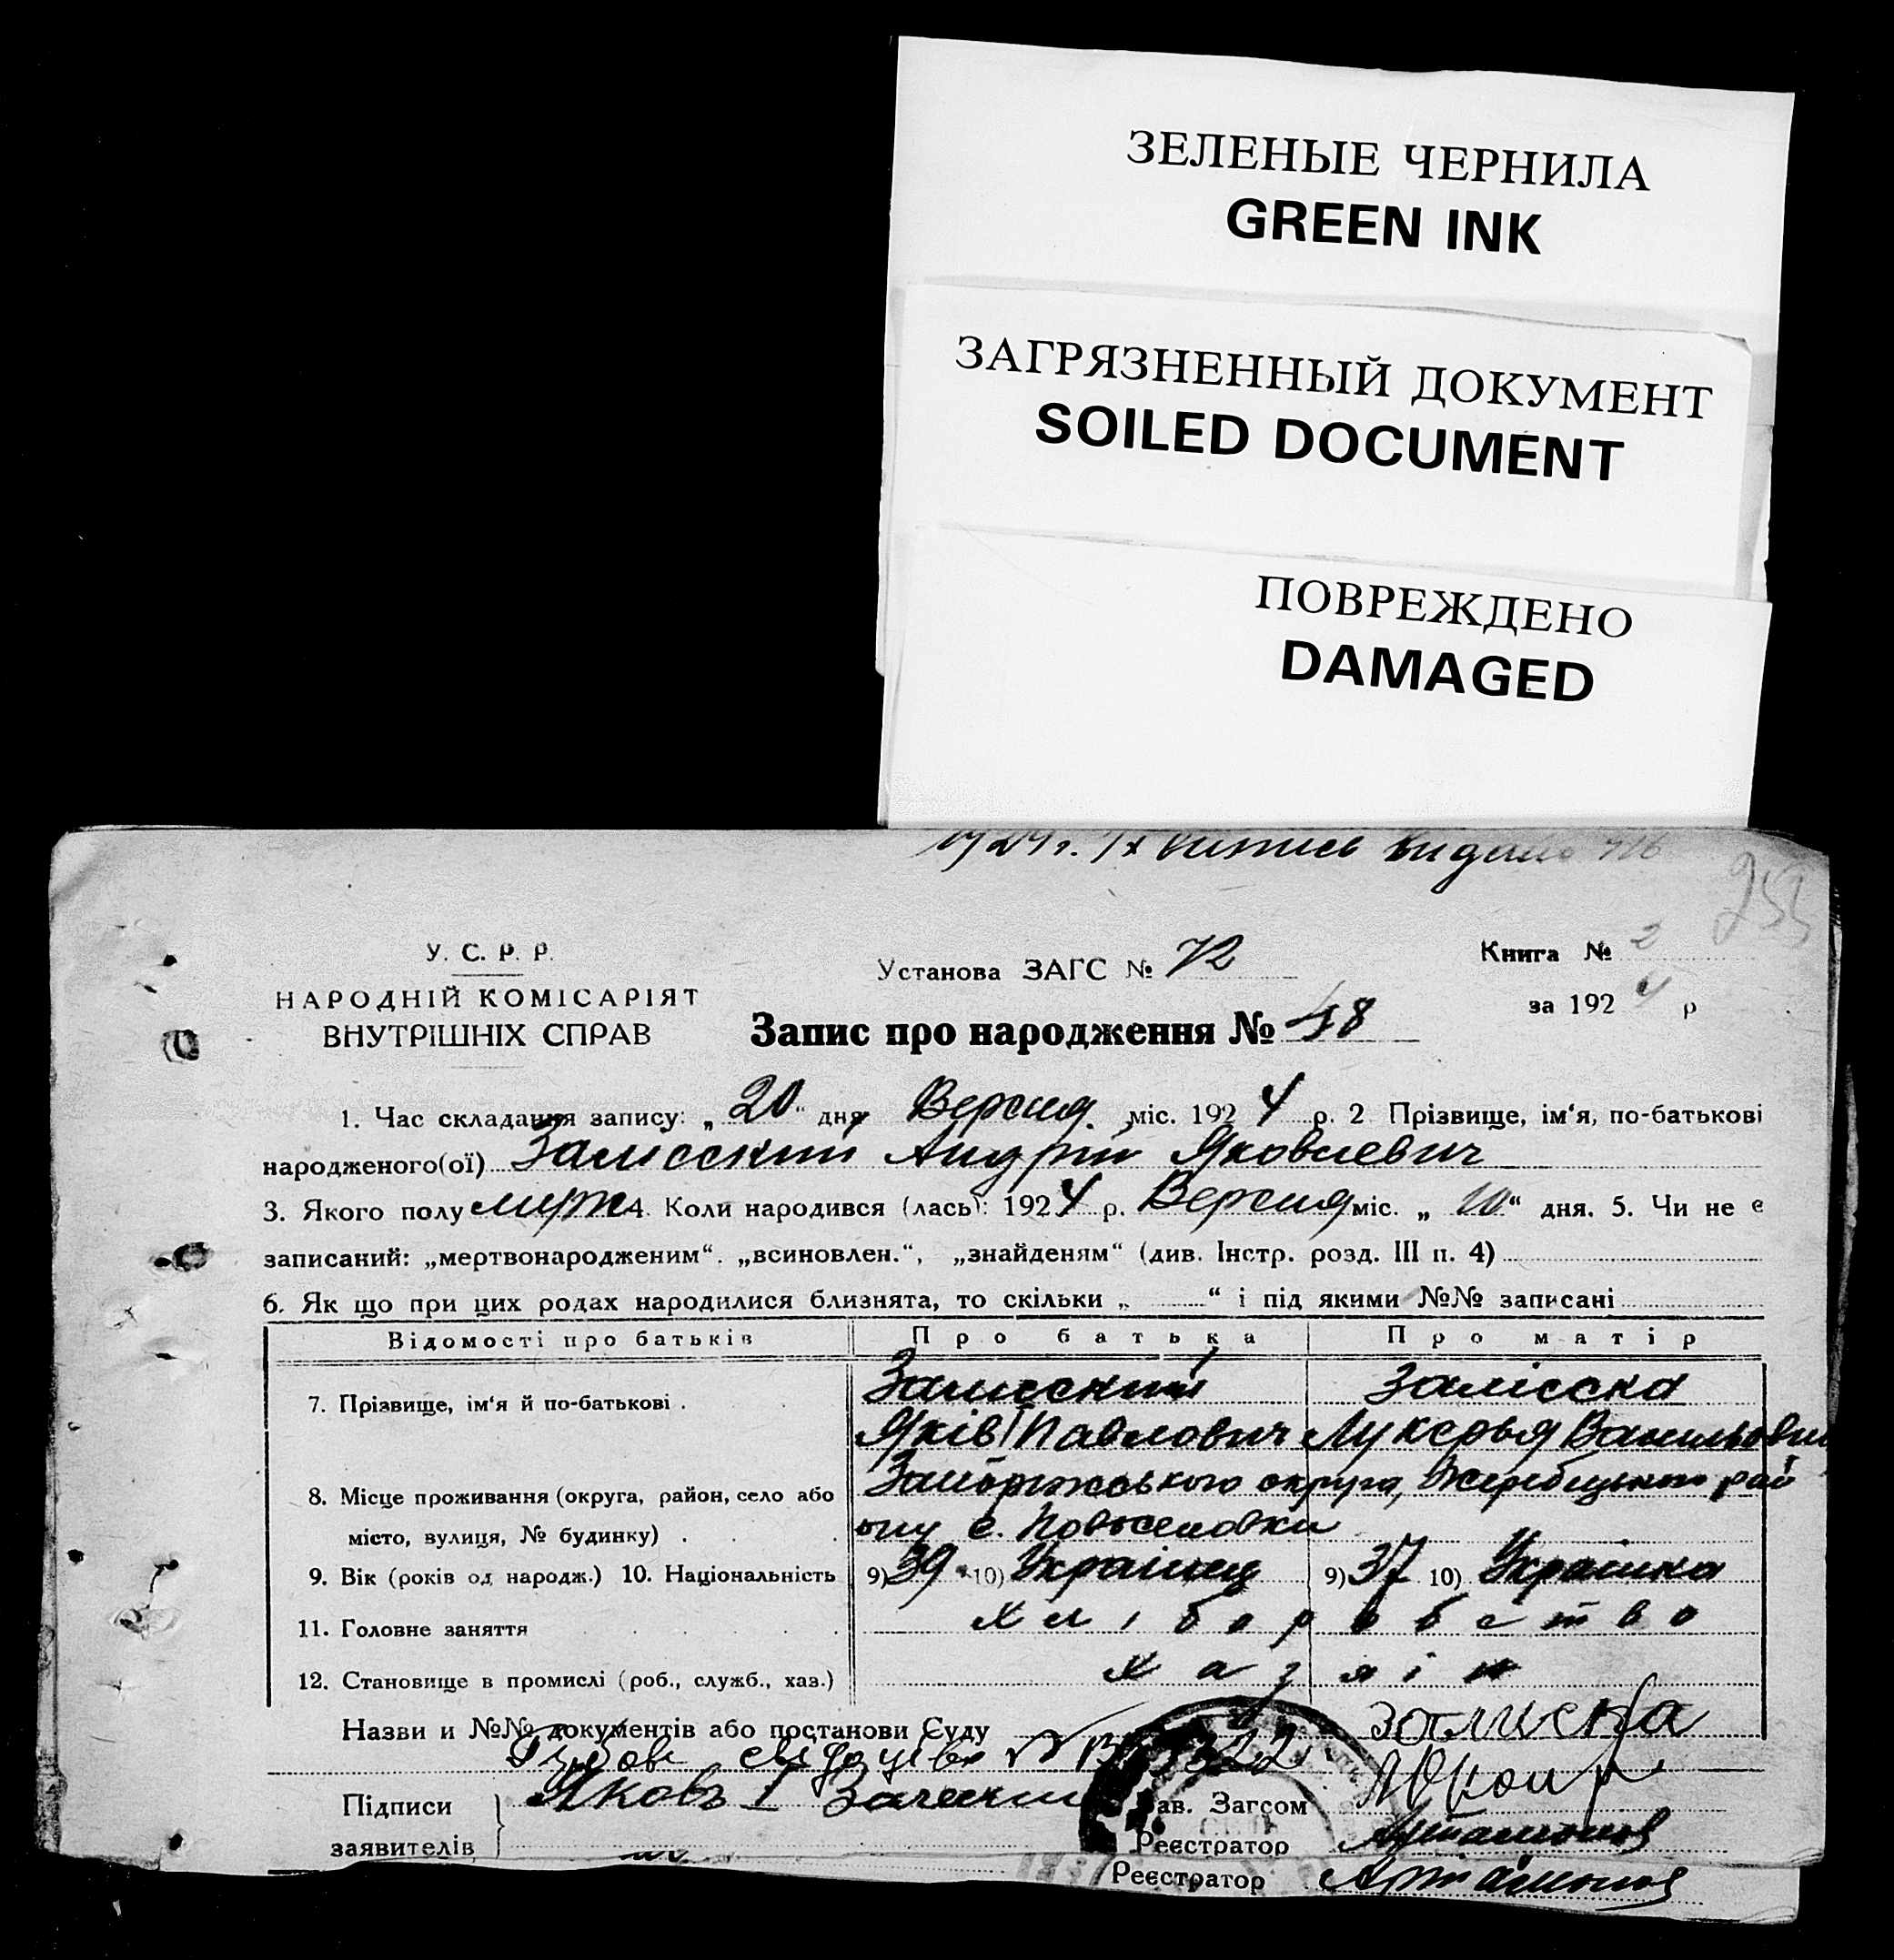 ЗЕЛЕНЫЕ ЧЕРНИЛА
GREEN INK
ЗАГРЯЗНЕННЫЙ ДОКУМЕНТ
SOILED DOCUMENT
ПОВРЕЖДЕНО
DAMAGED
У. С. Р. Р.
НАРОДНІЙ КОМІСАРІЯТ
ВНУТРІШНІХ СПРАВ
Установа ЗАГС № 72
Книга № 2
за 1924 р
Запис про народження № 48
1. Час складання запису: „20“ дня Версня міс. 1924 р. 2 Прізвище, ім‘я, по-батькові
народженого(ої) Заліский Андрій Яковлевич
3. Якого полу муж 4. Коли народився (лась): 1924 р. Версня міс. „10“ дня. 5. Чи не є
записаний: „мертвонародженим“. „всиновлен.“, „знайденям“ (див. Інстр. розд. III п. 4)
6. Як що при цих родах народилися близнята, то скільки „ “ і під якими №№ записані
Відомості про батьків Про батька Про матір
7. Прізвище, ім‘я й по-батькові . Заліский Заліска
Яків Павлович Лукерья Васильовна
8. Місце проживання (округа, район, село або Запоріжського округа, Жеребецького рай
місто, вулиця, № будинку) . ону с. Новоселовки
9. Вік (років од народж.) 10. Національність 9) 39 10) Українец 9) 37 10) Українка
11. Головне заняття хліборобство
12. Становище в промислі (роб., служб., хаз.) хазяїн
Назви и №№ документів або постанови Суду
Підписи
заявителів
Яковъ
Зав. Загсом
Реєстратор Артамонов
Реєстратор Артамонов